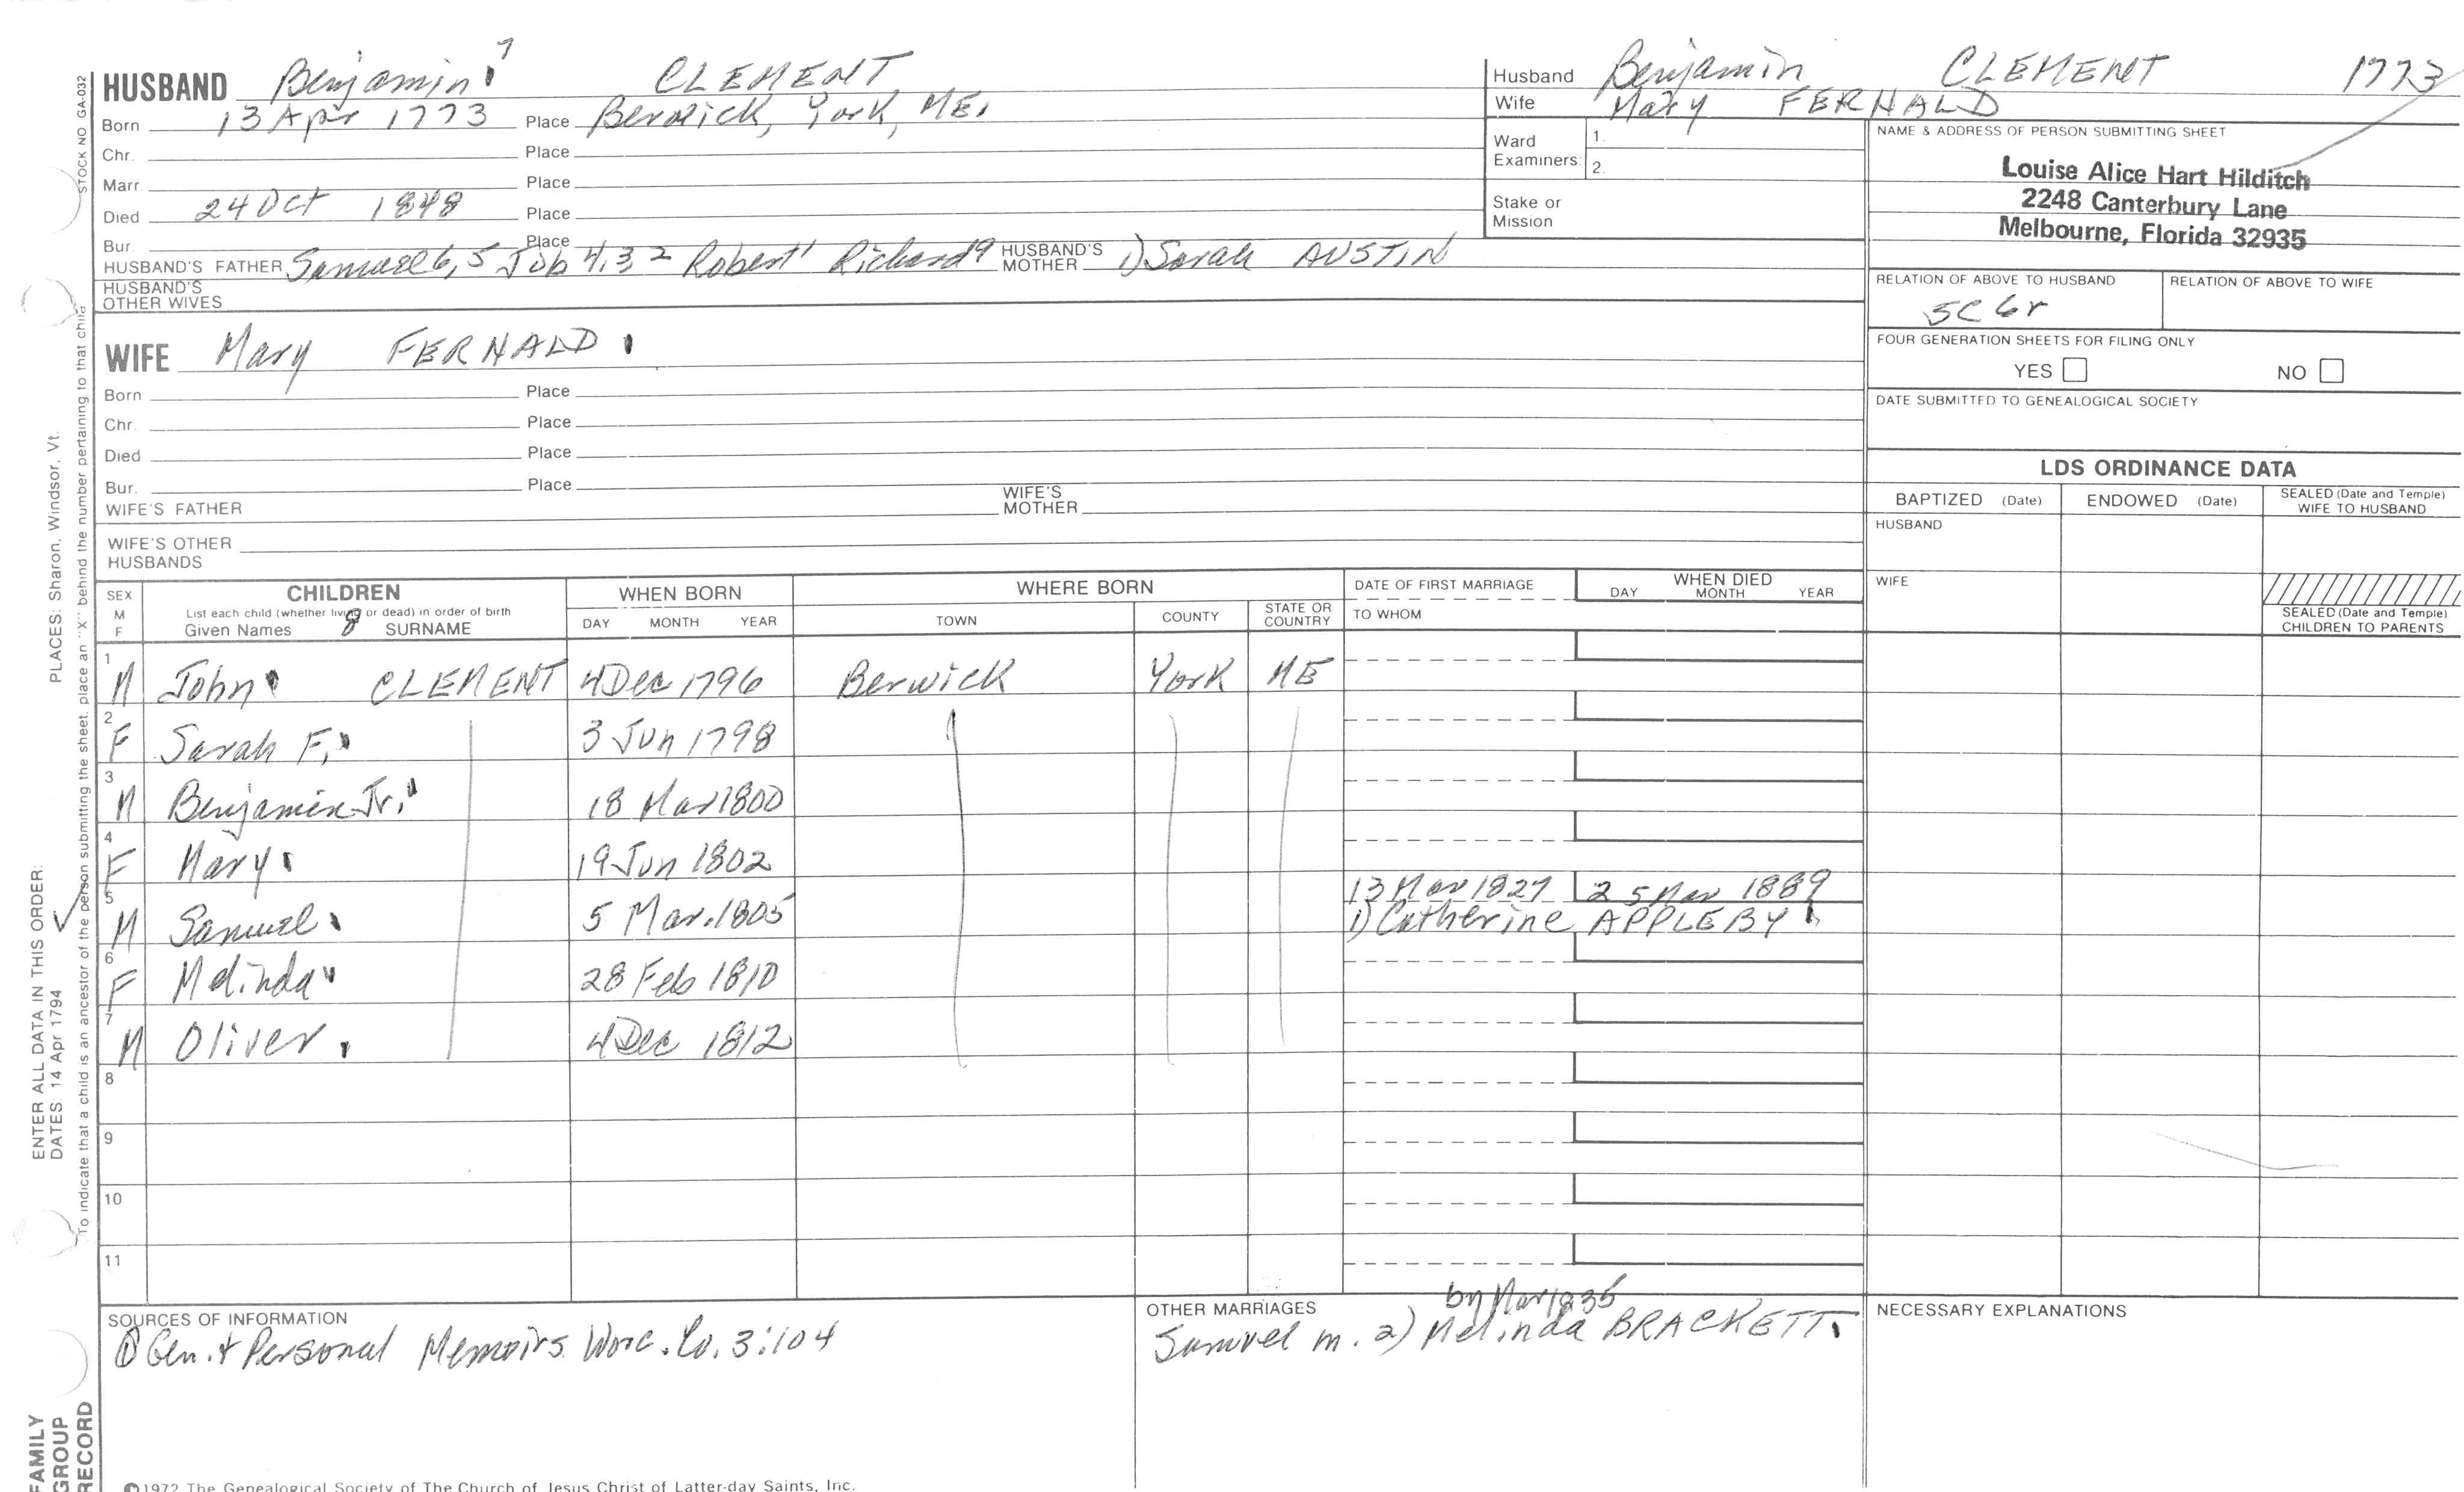 HUSBAND Benjamin 7 CLEMENT
Born 13 Apr 1773 Place Berwick, York, ME.
Chr. Place
Marr. Place
Died 24 Oct 1848 Place
Bur. Place
HUSBAND'S FATHER Samuel 6, 5 Job 4, 3 2 Robert 1 Richard 9 HUSBAND'S MOTHER 1) Sarah AUSTIN
HUSBAND'S OTHER WIVES
WIFE Mary FERNALD
Born Place
Chr. Place
Died Place
Bur. Place
WIFE'S FATHER WIFE'S MOTHER
WIFE'S OTHER HUSBANDS
Husband Benjamin CLEMENT 1773
Wife Mary FERNALD
Ward Examiners: 1.
2.
Stake or Mission
NAME & ADDRESS OF PERSON SUBMITTING SHEET
Louise Alice Hart Hilditch
2248 Canterbury Lane
Melbourne, Florida 32935
RELATION OF ABOVE TO HUSBAND RELATION OF ABOVE TO WIFE
5C 6r
FOUR GENERATION SHEETS FOR FILING ONLY
YES NO
DATE SUBMITTED TO GENEALOGICAL SOCIETY
LDS ORDINANCE DATA
BAPTIZED (Date) ENDOWED (Date) SEALED (Date and Temple) WIFE TO HUSBAND
HUSBAND
WIFE
SEALED (Date and Temple) CHILDREN TO PARENTS
SEX M F CHILDREN WHEN BORN WHERE BORN DATE OF FIRST MARRIAGE WHEN DIED
List each child (whether living or dead) in order of birth
Given Names 8 SURNAME DAY MONTH YEAR TOWN COUNTY STATE OR COUNTRY TO WHOM DAY MONTH YEAR
1 M John CLEMENT 4 Dec 1796 Berwick York ME
2 F Sarah F. 3 Jun 1798
3 M Benjamin Jr. 18 Mar 1800
4 F Mary 19 Jun 1802
5 M Samuel 5 Mar. 1805 13 Mar 1827 25 Mar 1889
1) Catherine APPLEBY
6 F Melinda 28 Feb 1810
7 M Oliver 4 Dec 1812
8
9
10
11
SOURCES OF INFORMATION
① Gen. & Personal Memoirs Worc. Co. 3:104
OTHER MARRIAGES
by Mar 1835
Samuel m. 2) Melinda BRACKETT
NECESSARY EXPLANATIONS
©1972 The Genealogical Society of The Church of Jesus Christ of Latter-day Saints, Inc.
STOCK NO GA-032
To indicate that a child is an ancestor of the person submitting the sheet, place an "X" behind the number pertaining to that child
ENTER ALL DATA IN THIS ORDER:
DATES: 14 Apr 1794 PLACES: Sharon, Windsor, Vt.
FAMILY
GROUP
RECORD